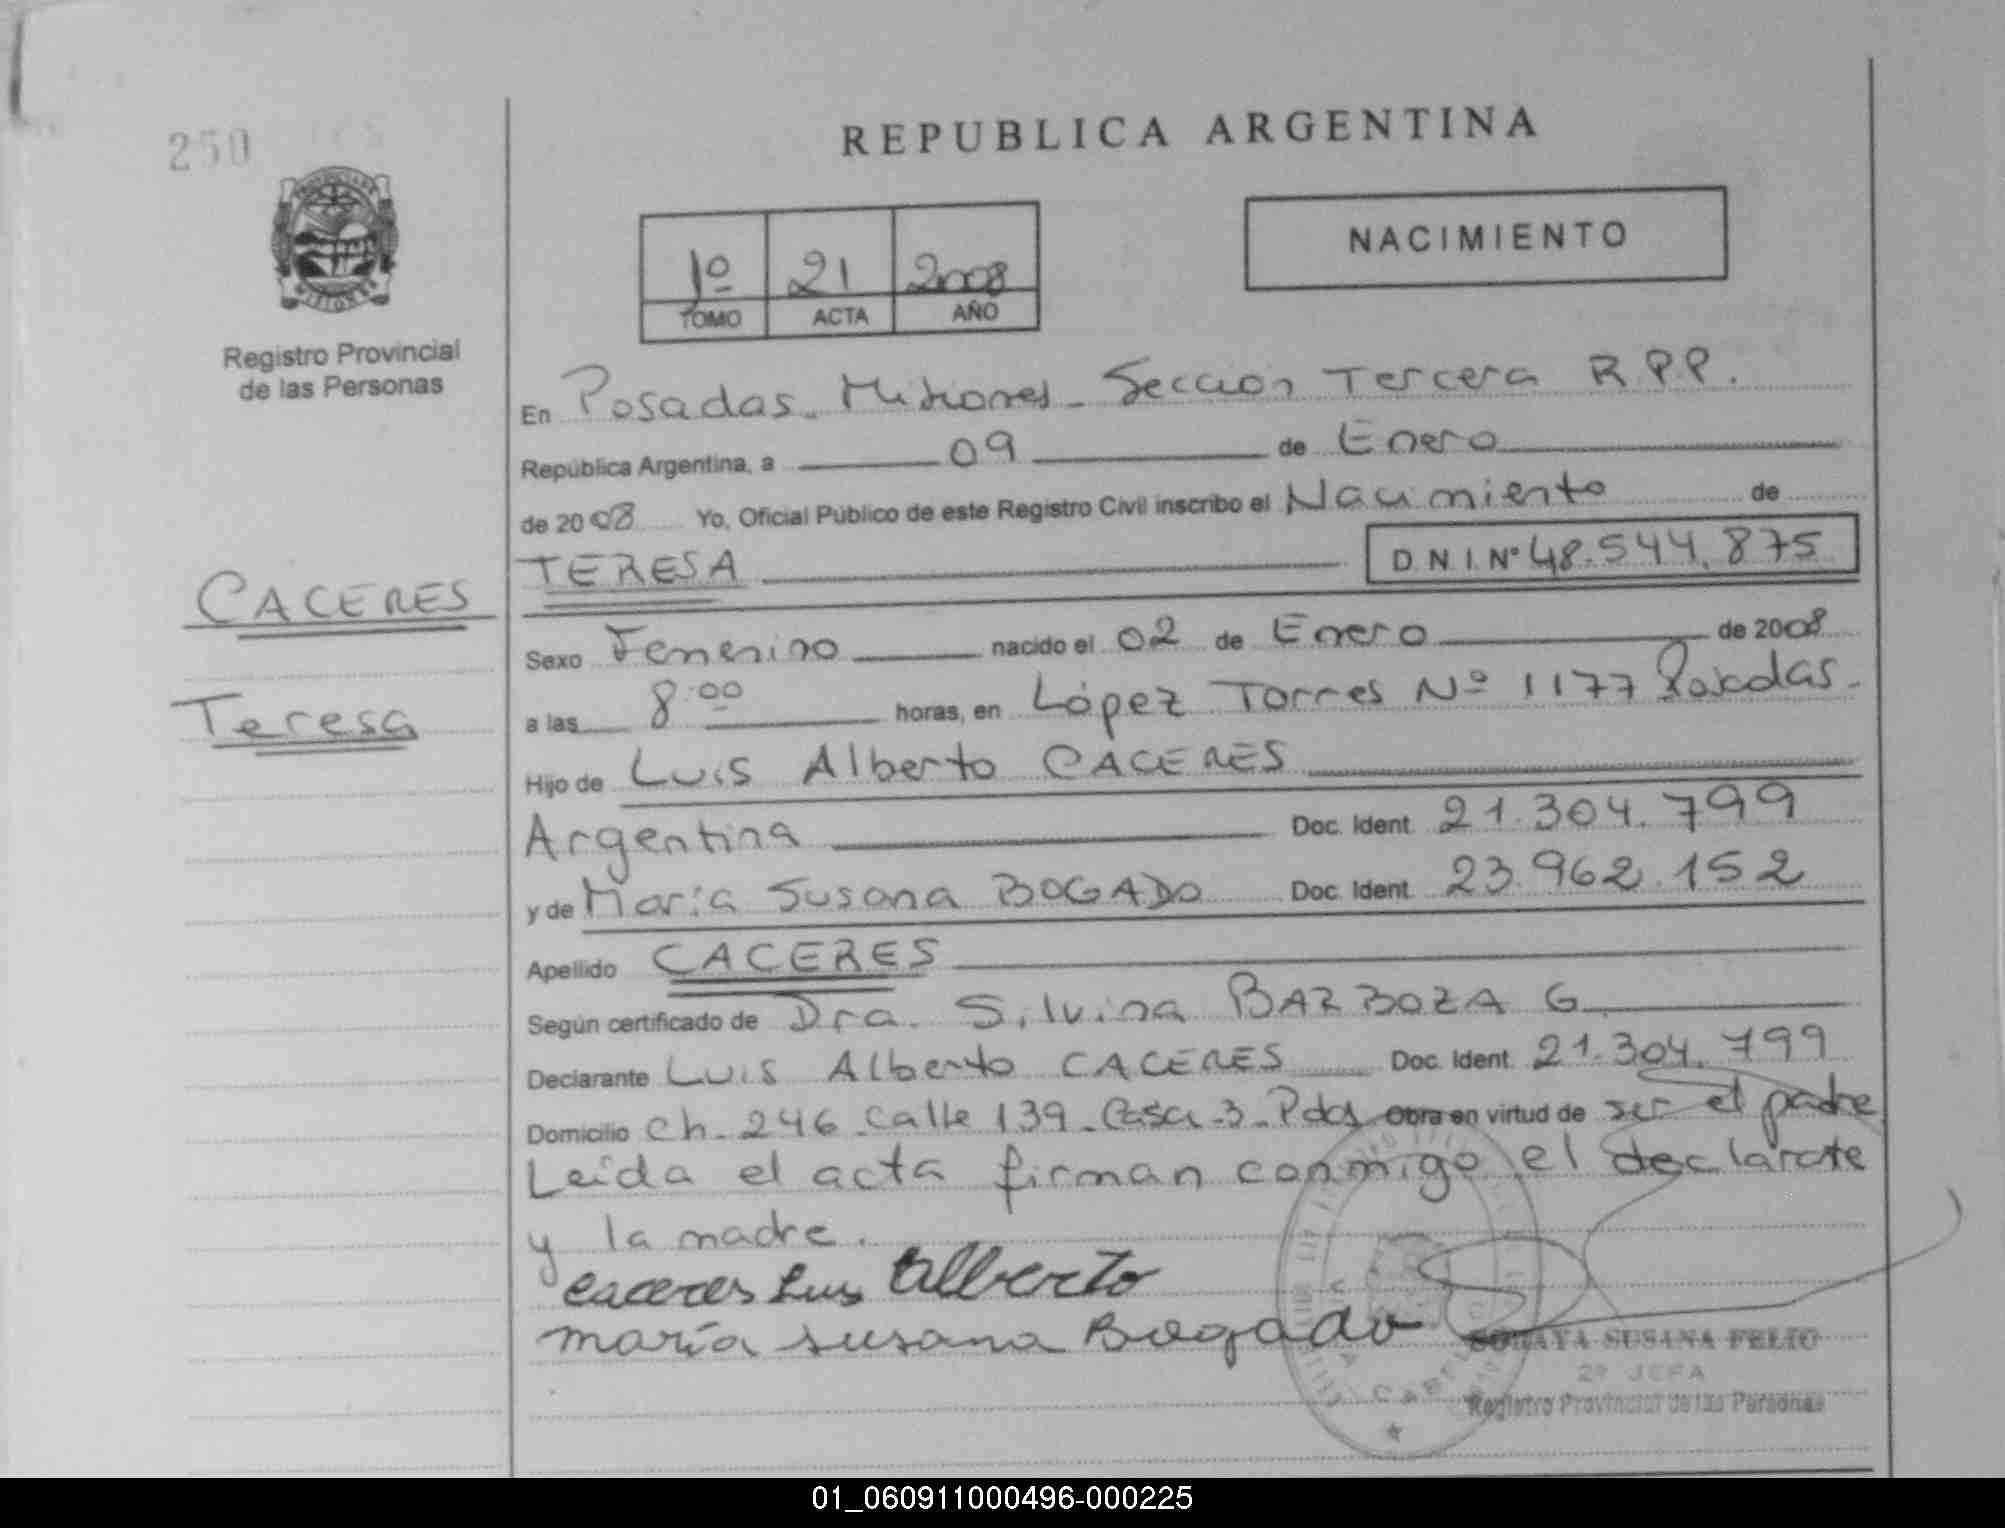 250
REPUBLICA ARGENTINA
PROVINCIA DE
MISIONES
Registro Provincial
de las Personas
1º 21 2008
TOMO ACTA AÑO
NACIMIENTO
En Posadas - Misiones - Sección Tercera R.P.P.
República Argentina, a 09 de Enero
de 2008 Yo, Oficial Público de este Registro Civil inscribo el Nacimiento de
TERESA D.N.I. Nº 48.544.875
CACERES
Teresa
Sexo Femenino nacido el 02 de Enero de 2008
a las 8:00 horas, en López Torres Nº 1177 Posadas.
Hijo de Luis Alberto CACERES
Argentina Doc. Ident. 21.304.799
y de María Susana BOGADO Doc. Ident. 23.962.152
Apellido CACERES
Según certificado de Dra. Silvina BARBOZA G.
Declarante Luis Alberto CACERES Doc. Ident. 21.304.799
Domicilio Ch. 246 - Calle 139 - Casa 3 - Pdas Obra en virtud de ser el padre
Leída el acta firman conmigo el declarate
y la madre.
caceres Luis Alberto
maría susana Bogado
SORAYA SUSANA FELIO
2º JEFA
Registro Provincial de las Personas
01_060911000496-000225